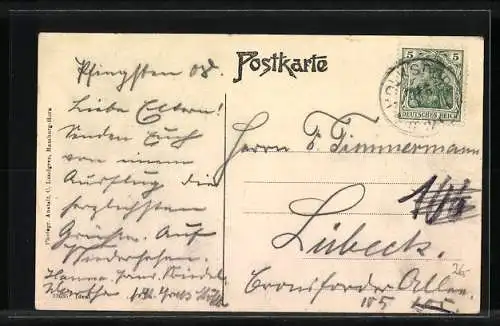 Postkarte
Pfingsten 08.
Liebe Eltern!
Senden Euch
von einem
Ausflug die
herzlichsten
Grüße. Auf
Wiedersehen.
Hanna
Photogr. Anstalt, C. Lundgren, Hamburg-Horn
5 5
DEUTSCHES REICH
Herrn F. Timmermann
Lübeck.
Cronsforder Allee
105
26-